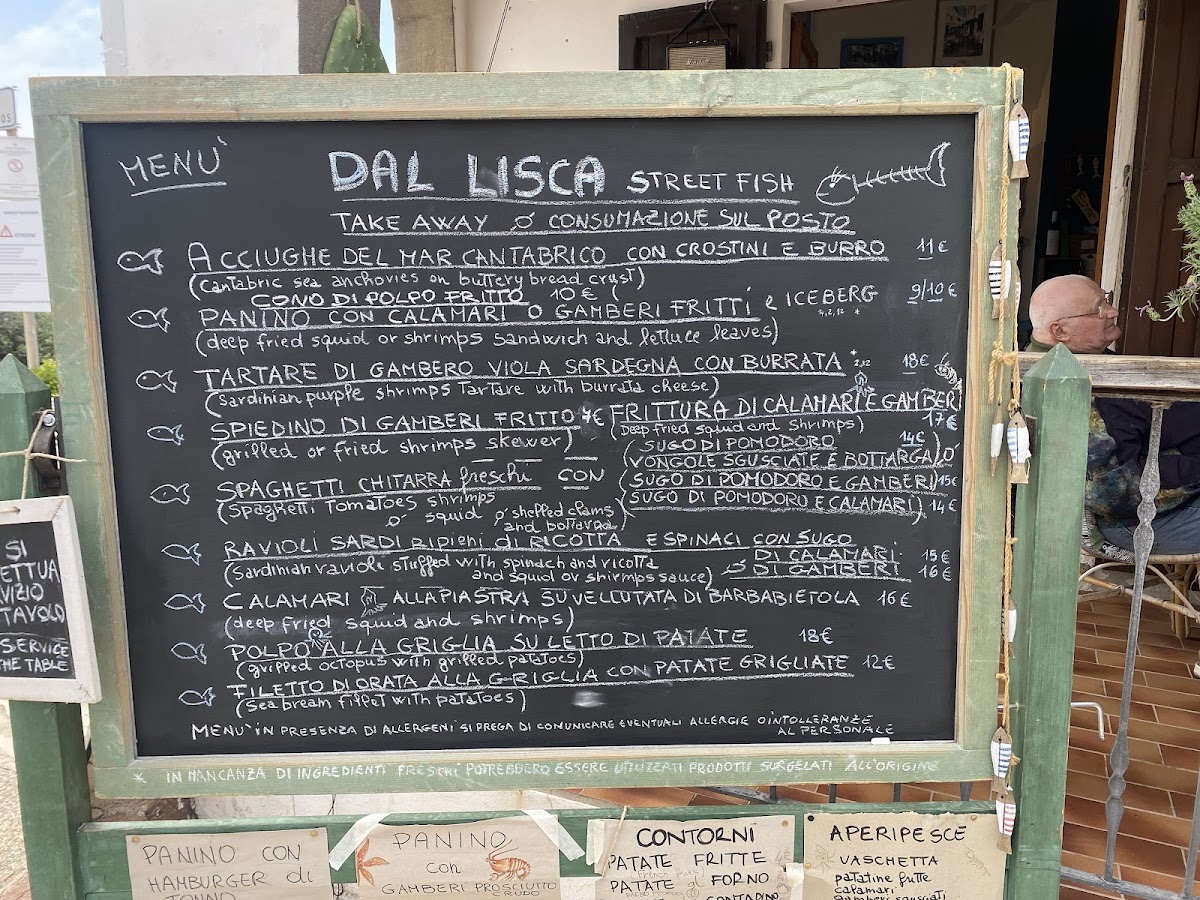 MENU'
DAL LISCA STREET FISH
TAKE AWAY o CONSUMAZIONE SUL POSTO
ACCIUGHE DEL MAR CANTABRICO CON CROSTINI E BURRO 11€
(cantabric sea anchovies on buttery bread crust)
CONO DI POLPO FRITTO 10€
PANINO CON CALAMARI O GAMBERI FRITTI e ICEBERG 9/10€
(deep fried squid or shrimps sandwich and lettuce leaves)
TARTARE DI GAMBERO VIOLA SARDEGNA CON BURRATA 18€
(sardinian purple shrimps tartare with burrata cheese)
SPIEDINO DI GAMBERI FRITTO €
(grilled or fried shrimps skewer)
FRITTURA DI CALAMARI E GAMBERI
(Deep fried squid and shrimps) 17€
SPAGHETTI CHITARRA freschi CON
(SUGO DI POMODORO 14€
VONGOLE SGUSCIATE E BOTTARGA
(SUGO DI POMODORO E GAMBERI) 15€
(SUGO DI POMODORO E CALAMARI) 14€
(spaghetti tomatoes shrimps
o squid o shelled clams
and
RAVIOLI SARDI RIPIENI di RICOTTA E SPINACI CON SUGO
DI CALAMARI 15€
DI GAMBERI 16€
(Sardinian ravioli stuffed with spinach and ricotta
and squid or shirmps sauce)
CALAMARI ALLA PIASTRA SU VELLUTATA DI BARBABIETOLA 16€
(deep fried squid and shrimps)
POLPO ALLA GRIGLIA SU LETTO DI PATATE 18€
(grilled octopus with grilled patatoes)
FILETTO DI ORATA ALLA GRIGLIA CON PATATE GRIGLIATE 12€
(sea bream fillet with patatoes)
MENU' IN PRESENZA DI ALLERGENI SI PREGA DI COMUNICARE EVENTUALI ALLERGIE O INTOLLERANZE
AL PERSONALE
* IN MANCANZA DI INGREDIENTI FRESCHI POTREBBERO ESSERE UTILIZZATI PRODOTTI SURGELATI ALL'ORIGINE
SI
ETTUA
VIZIO
TAVOLO
SERVICE
THE TABLE
PANINO CON
HAMBURGER di
TONNO
PANINO
con
GAMBERI PROSCIUTTO
CRUDO
CONTORNI
PATATE FRITTE
PATATE FORNO
CONTADINO
APERIPESCE
VASCHETTA
patatine fritte
calamari
gamberi sgusciati